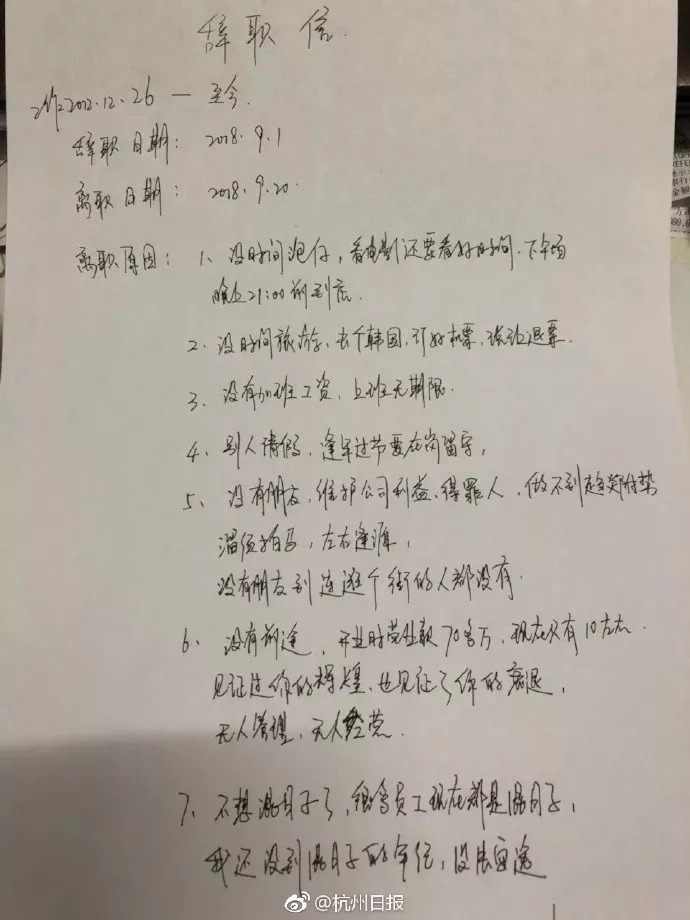 辞职信.
工作2012.12.26 — 至今.
辞职日期: 2018.9.1
离职日期: 2018.9.20.
离职原因: 1、没时间泡仔，看电影还要看好时间.下午场
晚上21:00前到店.
2、没时间旅游，去个韩国，订好机票，被迫退票.
3、没有加班工资，上班无期限.
4、别人请假，逢年过节要在岗留守，
5、没有朋友，维护公司利益、得罪人，做不到趋炎附势
溜须拍马，左右逢源，
没有朋友到连逛个街的人都没有.
6、没有前途，开业时营业额70多万，现在只有10左右.
见证过你的辉煌，也见证了你的衰退，
无人管理，无人经营.
7、不想混日子了，很多员工现在都是混日子，
我还没到混日子的年纪，没法逗途
@杭州日报